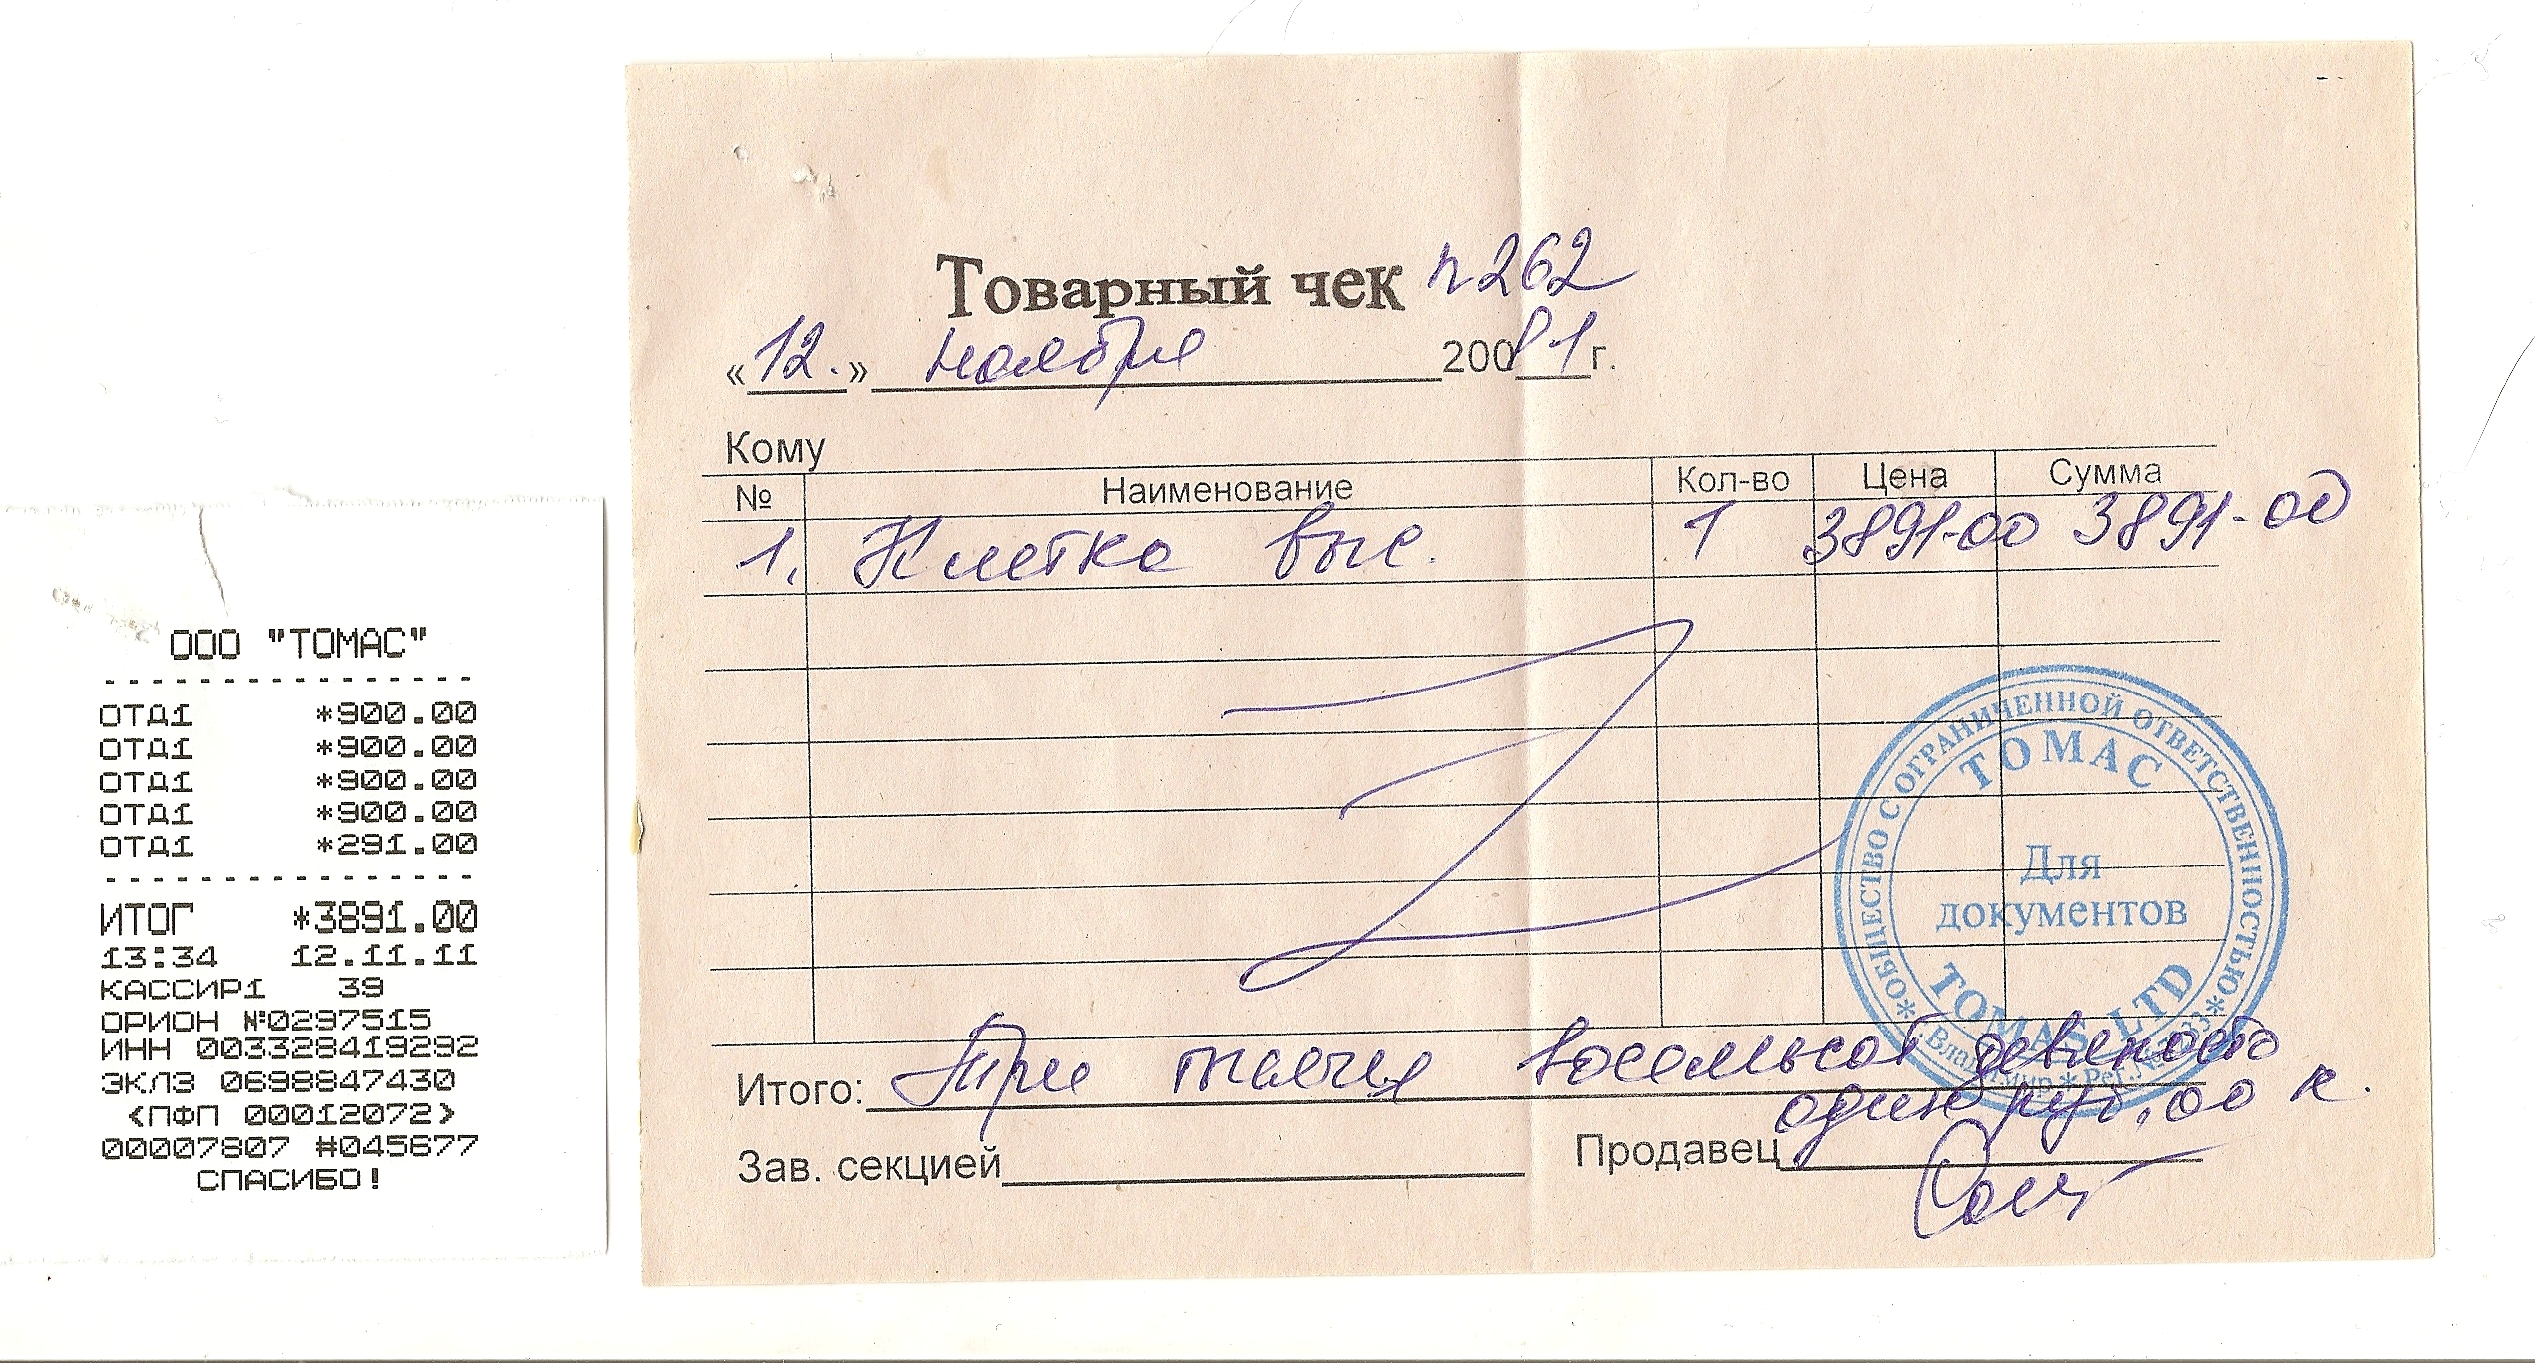 ООО "ТОМАС"
ОТД1 *900.00
ОТД1 *900.00
ОТД1 *900.00
ОТД1 *900.00
ОТД1 *291.00
ИТОГ *3891.00
13:34 12.11.11
КАССИР1 39
ОРИОН №0297515
ИНН 003328419292
ЭКЛЗ 0698847430
<ПФП 00012072>
00007807 #045677
СПАСИБО!
Товарный чек n 262
«12.» ноября 200 1 г.
Кому
№ Наименование Кол-во Цена Сумма
1. Клетка выс. 1 3891-00 3891-00
ОБЩЕСТВО С ОГРАНИЧЕННОЙ ОТВЕТСТВЕННОСТЬЮ
ТОМАС
Для
документов
TOMAS LTD
г. Владимир * Рег. №
Итого: Три тысячи восемьсот девяносто
один руб. 00 к.
Зав. секцией Продавец